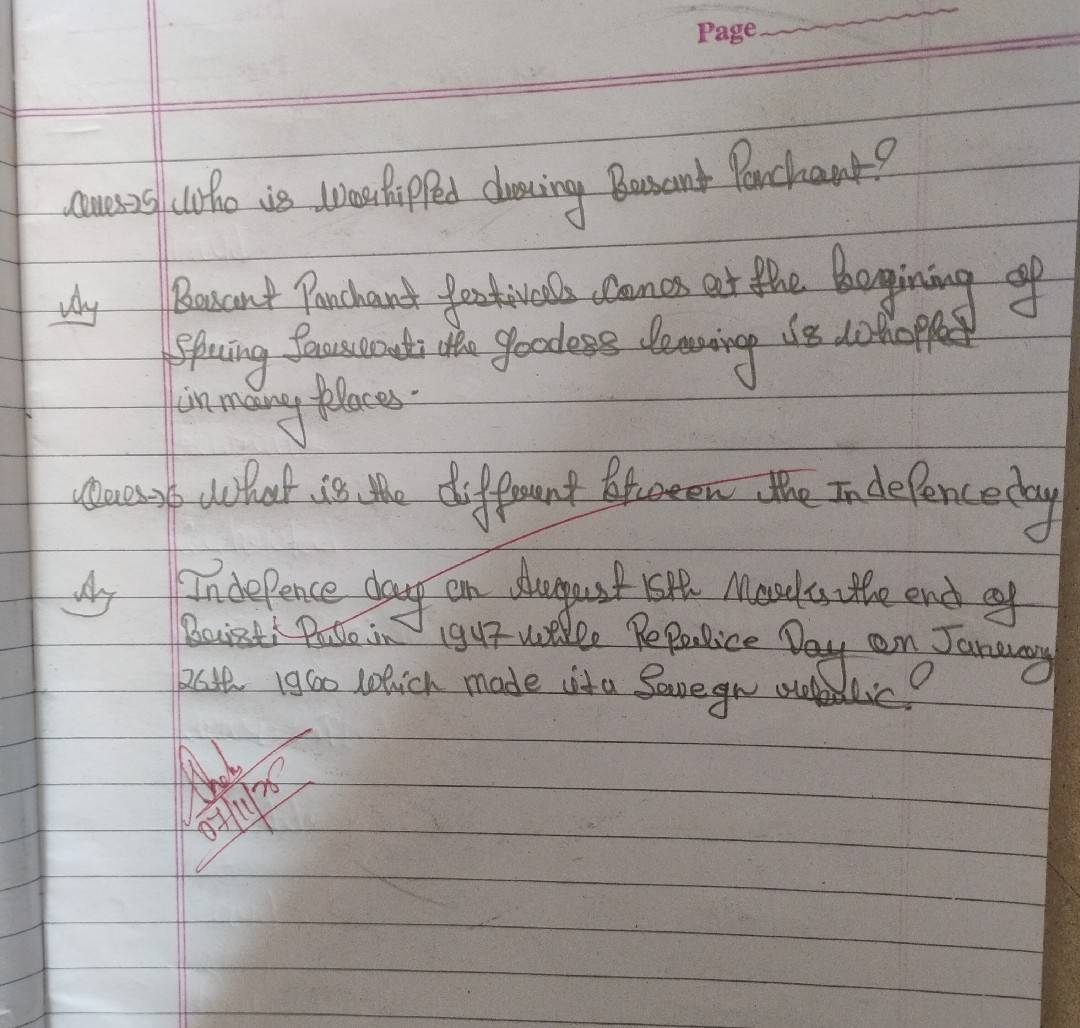 Page
Ques→5 Who is Worhipped during Basant Panchant?
Ay Basant Panchant festivals Comes at the begining of
Spring Saraswati the goodess learning is whopped
in many places.
Ques→6 What is the different btween the Indefence day
Ay Indefence day on August 15th Marks the end of
Bristi Rule in 1947 while Repulice Day on January
26th 1960 which made it a Sovegn rebulic?
07/11/25